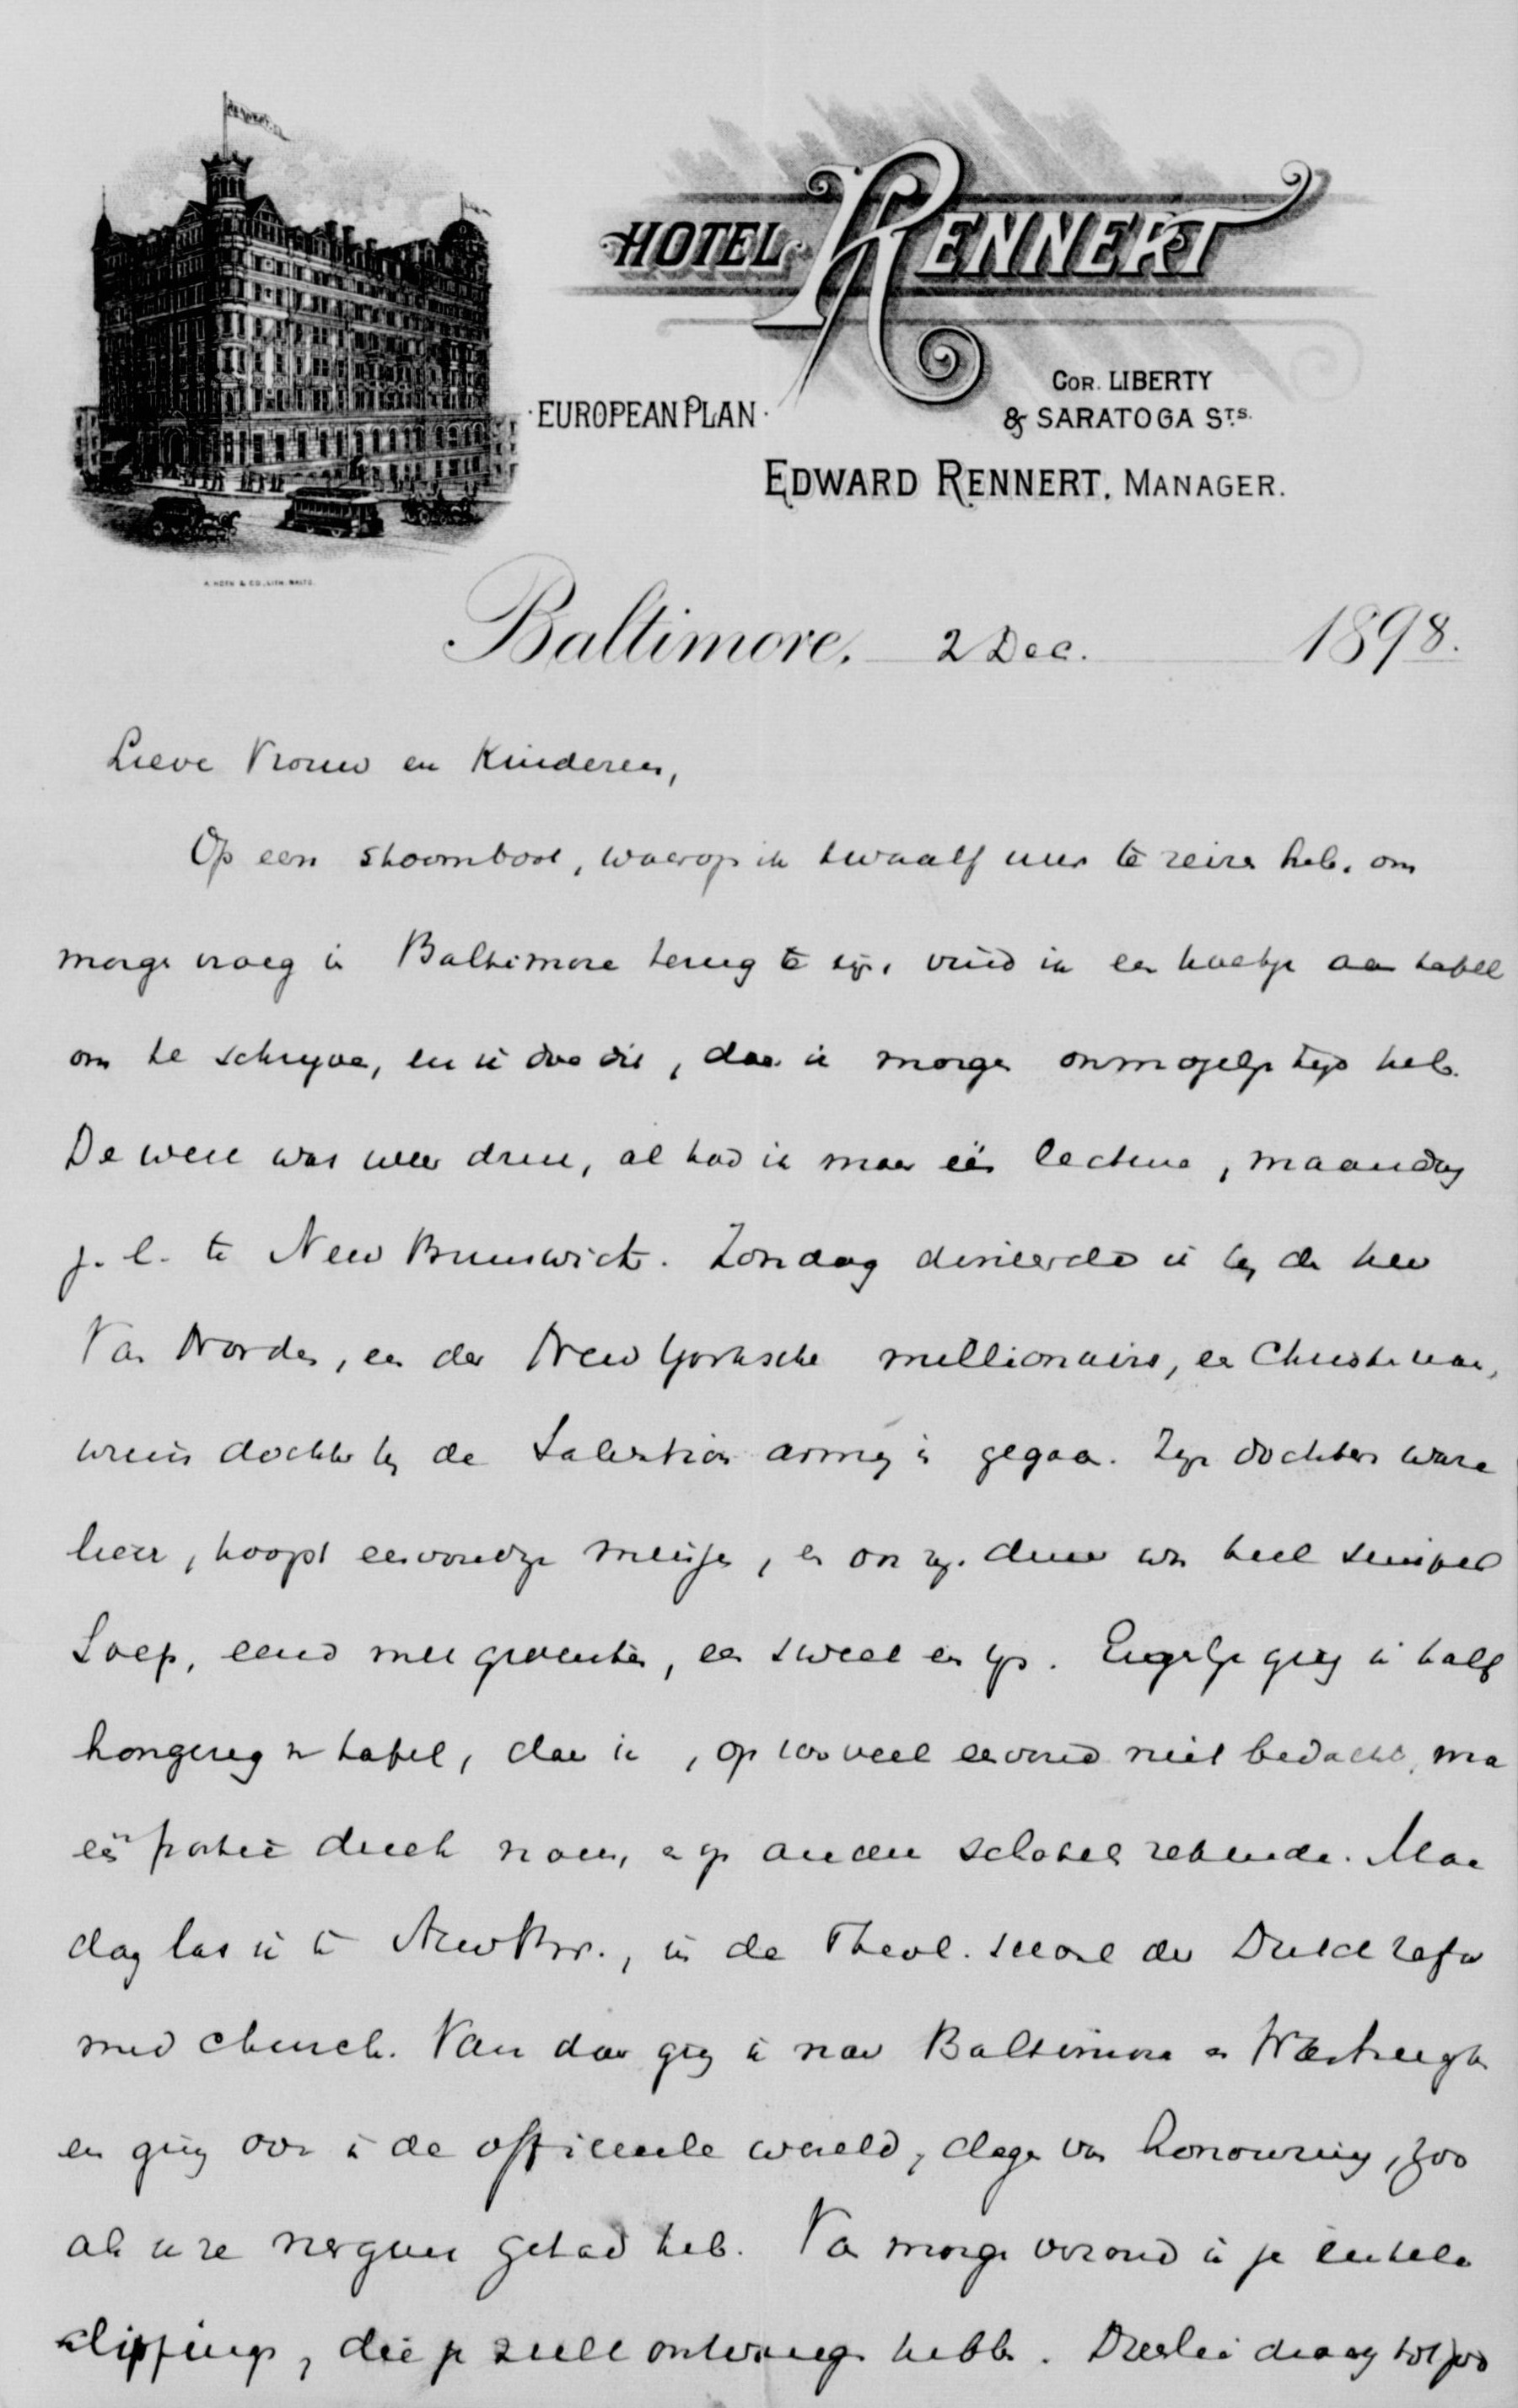 HOTEL RENNERT
EUROPEAN PLAN
COR. LIBERTY
& SARATOGA STS.
EDWARD RENNERT, MANAGER.
A. HOEN & CO., LITH. BALTO.
Baltimore, 2 Dec. 1898.
Lieve Vrouw en Kinderen,
Op een stoomboot, waarop ik twaalf uur te reizen heb, om
morgen vroeg in Baltimore terug te zijn, vind ik een hoekje aan tafel
om te schrijven, en ik doe dit, daar ik morgen onmogelijk tijd heb.
De week was weer druk, al had ik maar één lecture, maandag
j.l. te New Brunswick. Zondag dineerde ik bij de heer
Van Norden, een der New Yorksche millionairs, een Christen man,
wiens dochter bij de Salvation army is gegaan. Zijn dochters waren
lieve, hoogst eenvoudige meisjes, en ons diner was heel simpel
Soep, eend met groenten, een sweet en ijs. Eigenlijk ging ik half
hongerig van tafel, daar ik, op zooveel eenvoud niet bedacht, maar
één portie duck nam, en op andere schotels rekende. Maan
dag las ik te New Br., in de Theol. school der Dutch refor
med church. Van daar ging ik naar Baltimore en Washington
en ging over in de officieele wereld, dagen van honouring, zoo
als ik ze nergens gehad heb. Van morgen verzond ik je enkele
clippings, die je zult ontvangen hebben. Drieërlei droeg tot zoo